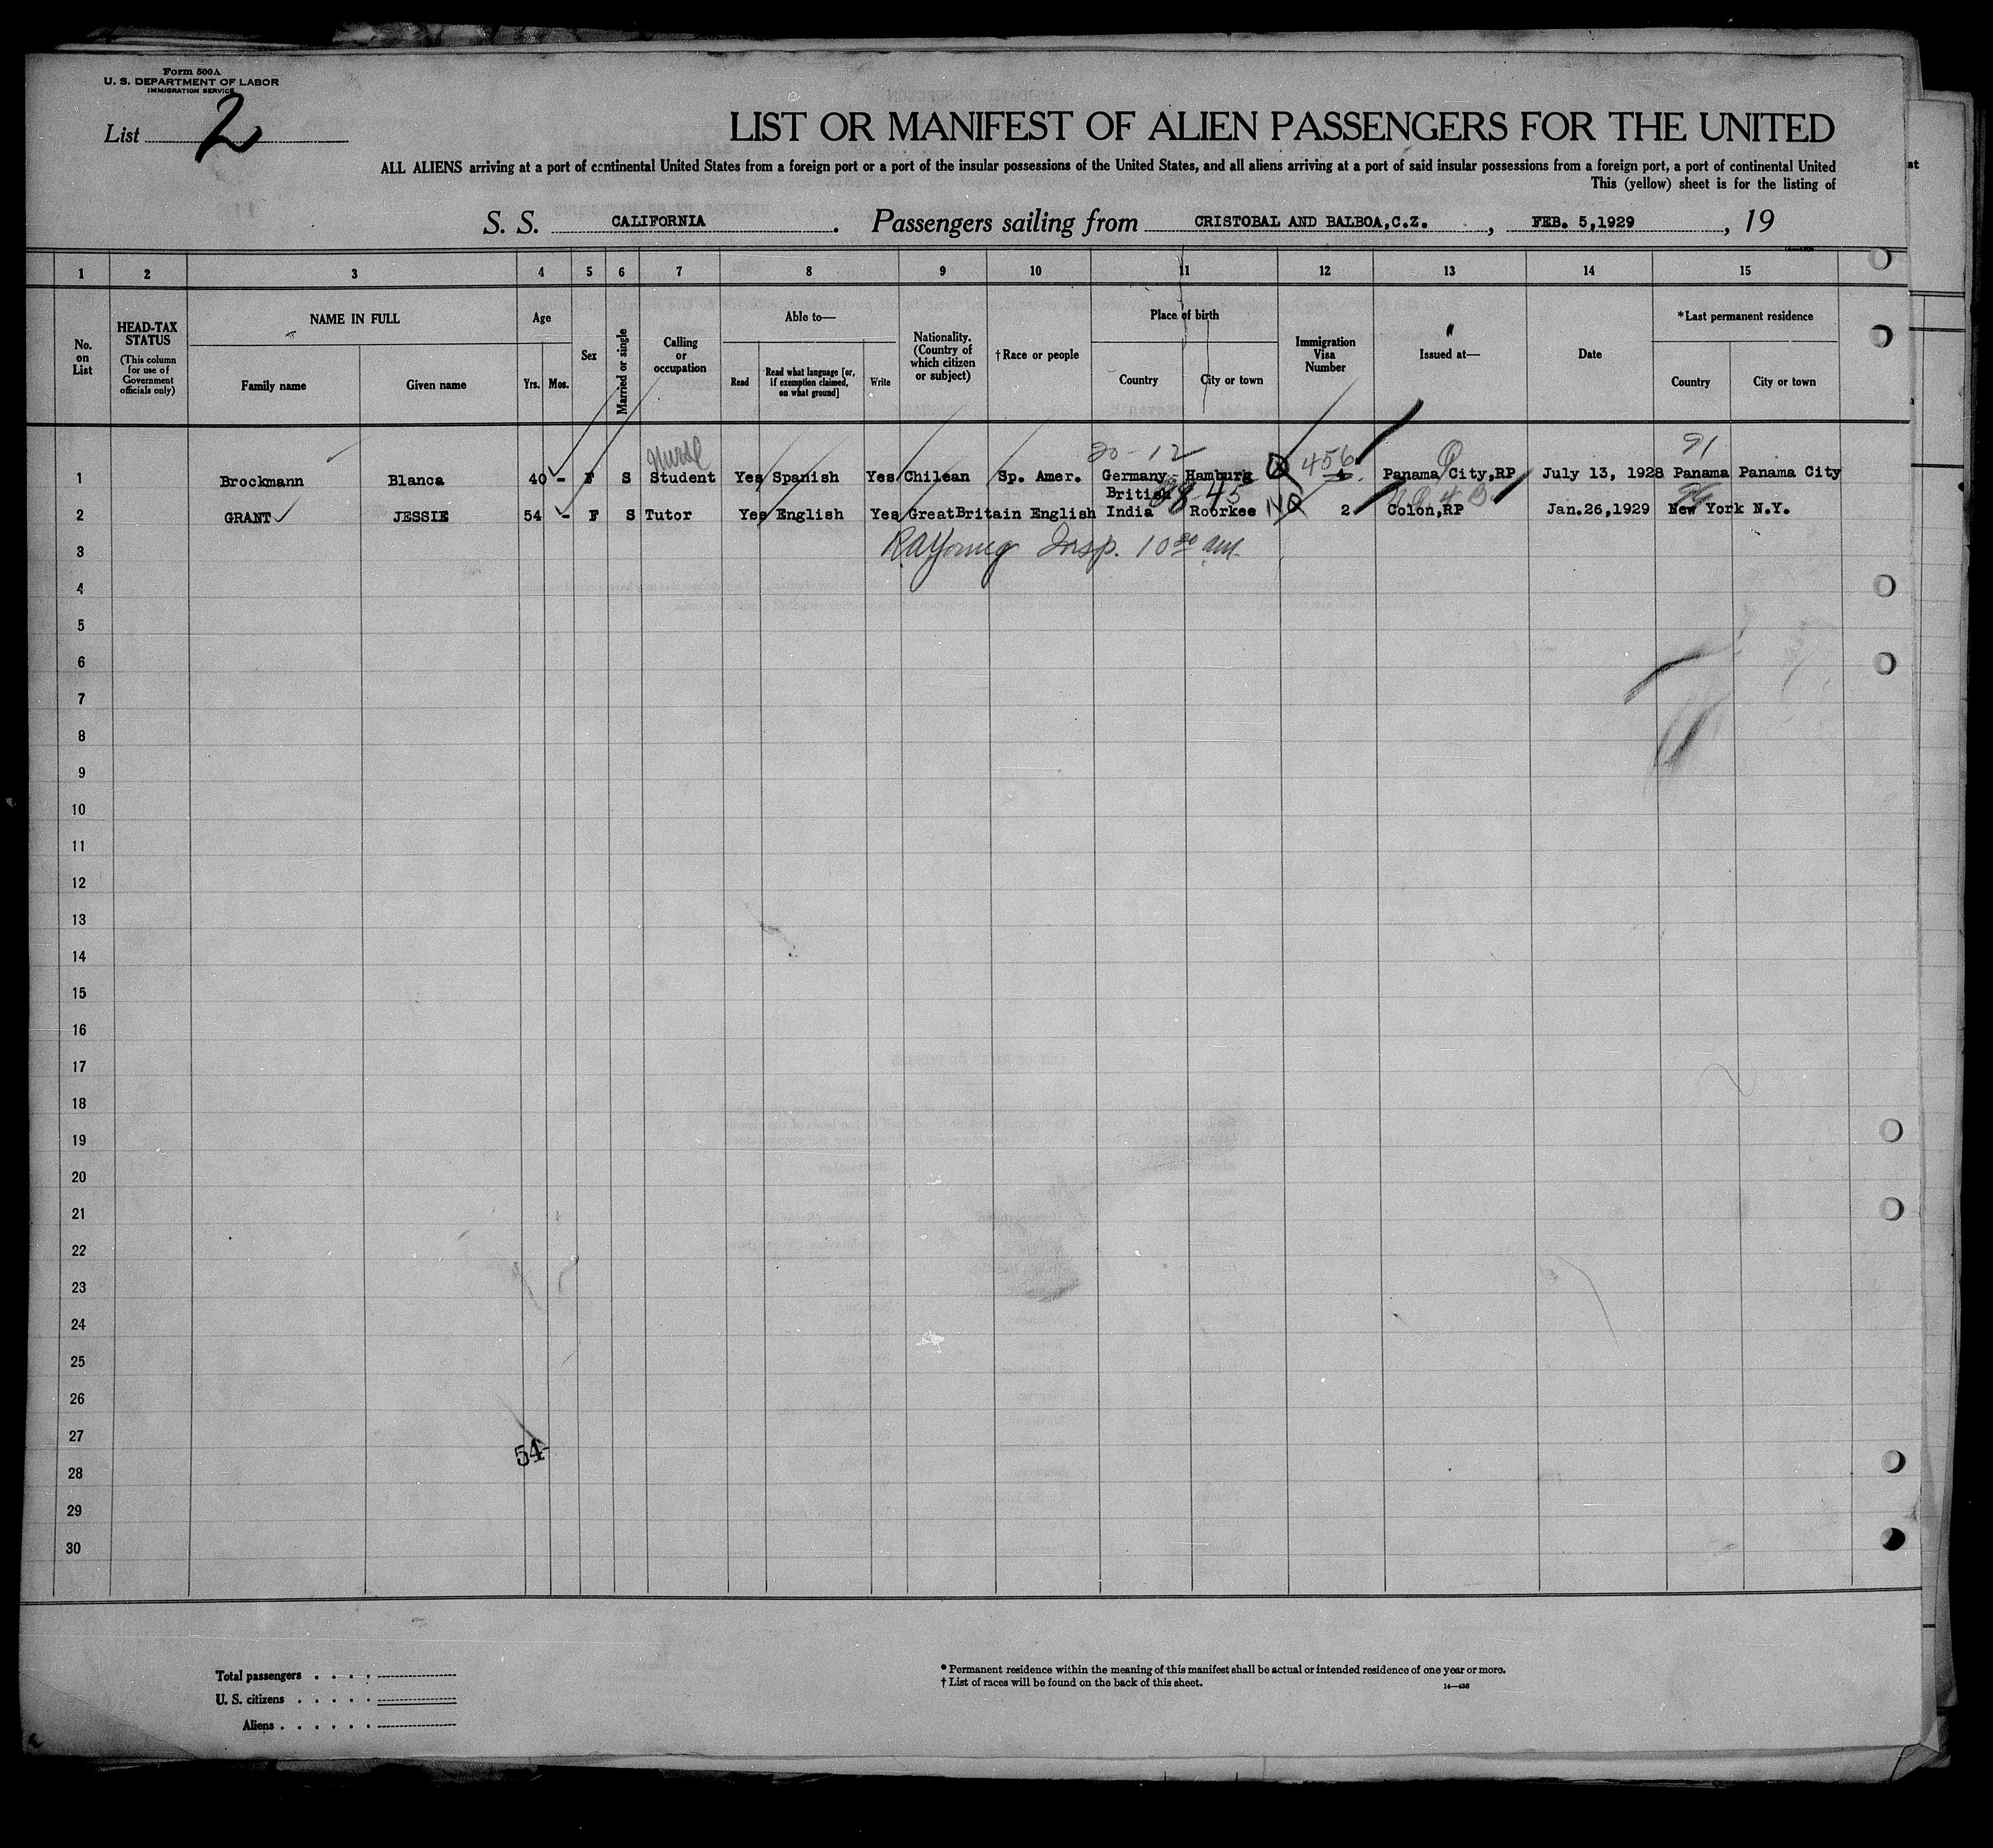 Form 500A
U. S. DEPARTMENT OF LABOR
IMMIGRATION SERVICE
List 2
LIST OR MANIFEST OF ALIEN PASSENGERS FOR THE UNITED
ALL ALIENS arriving at a port of continental United States from a foreign port or a port of the insular possessions of the United States, and all aliens arriving at a port of said insular possessions from a foreign port, a port of continental United
This (yellow) sheet is for the listing of
S. S. CALIFORNIA. Passengers sailing from CRISTOBAL AND BALBOA,C.Z., FEB. 5,1929, 19
1 2 3 4 5 6 7 8 9 10 11 12 13 14 15
No. on List
HEAD-TAX STATUS (This column for use of Government officials only)
NAME IN FULL
Family name Given name
Age
Yrs. Mos.
Sex
Married or single
Calling or occupation
Able to—
Read Read what language [or, if exemption claimed, on what ground] Write
Nationality. (Country of which citizen or subject)
†Race or people
Place of birth
Country City or town
Immigration Visa Number
Issued at—
Date
*Last permanent residence
Country City or town
Nurse 20-12 456 91
1 Brockmann Blanca 40 - F S Student Yes Spanish Yes Chilean Sp. Amer. Germany - Hamburg Panama City,RP July 13, 1928 Panama Panama City
British 45
2 GRANT JESSIE 54 - F S Tutor Yes English Yes GreatBritain English India Roorkee NQ 2 Colon,RP Jan.26,1929 New York N.Y.
3 Insp. 10 am.
4
5
6
7
8
9
10
11
12
13
14
15
16
17
18
19
20
21
22
23
24
25
26
27
54
28
29
30
Total passengers
U. S. citizens
Aliens
* Permanent residence within the meaning of this manifest shall be actual or intended residence of one year or more.
† List of races will be found on the back of this sheet.
14—430